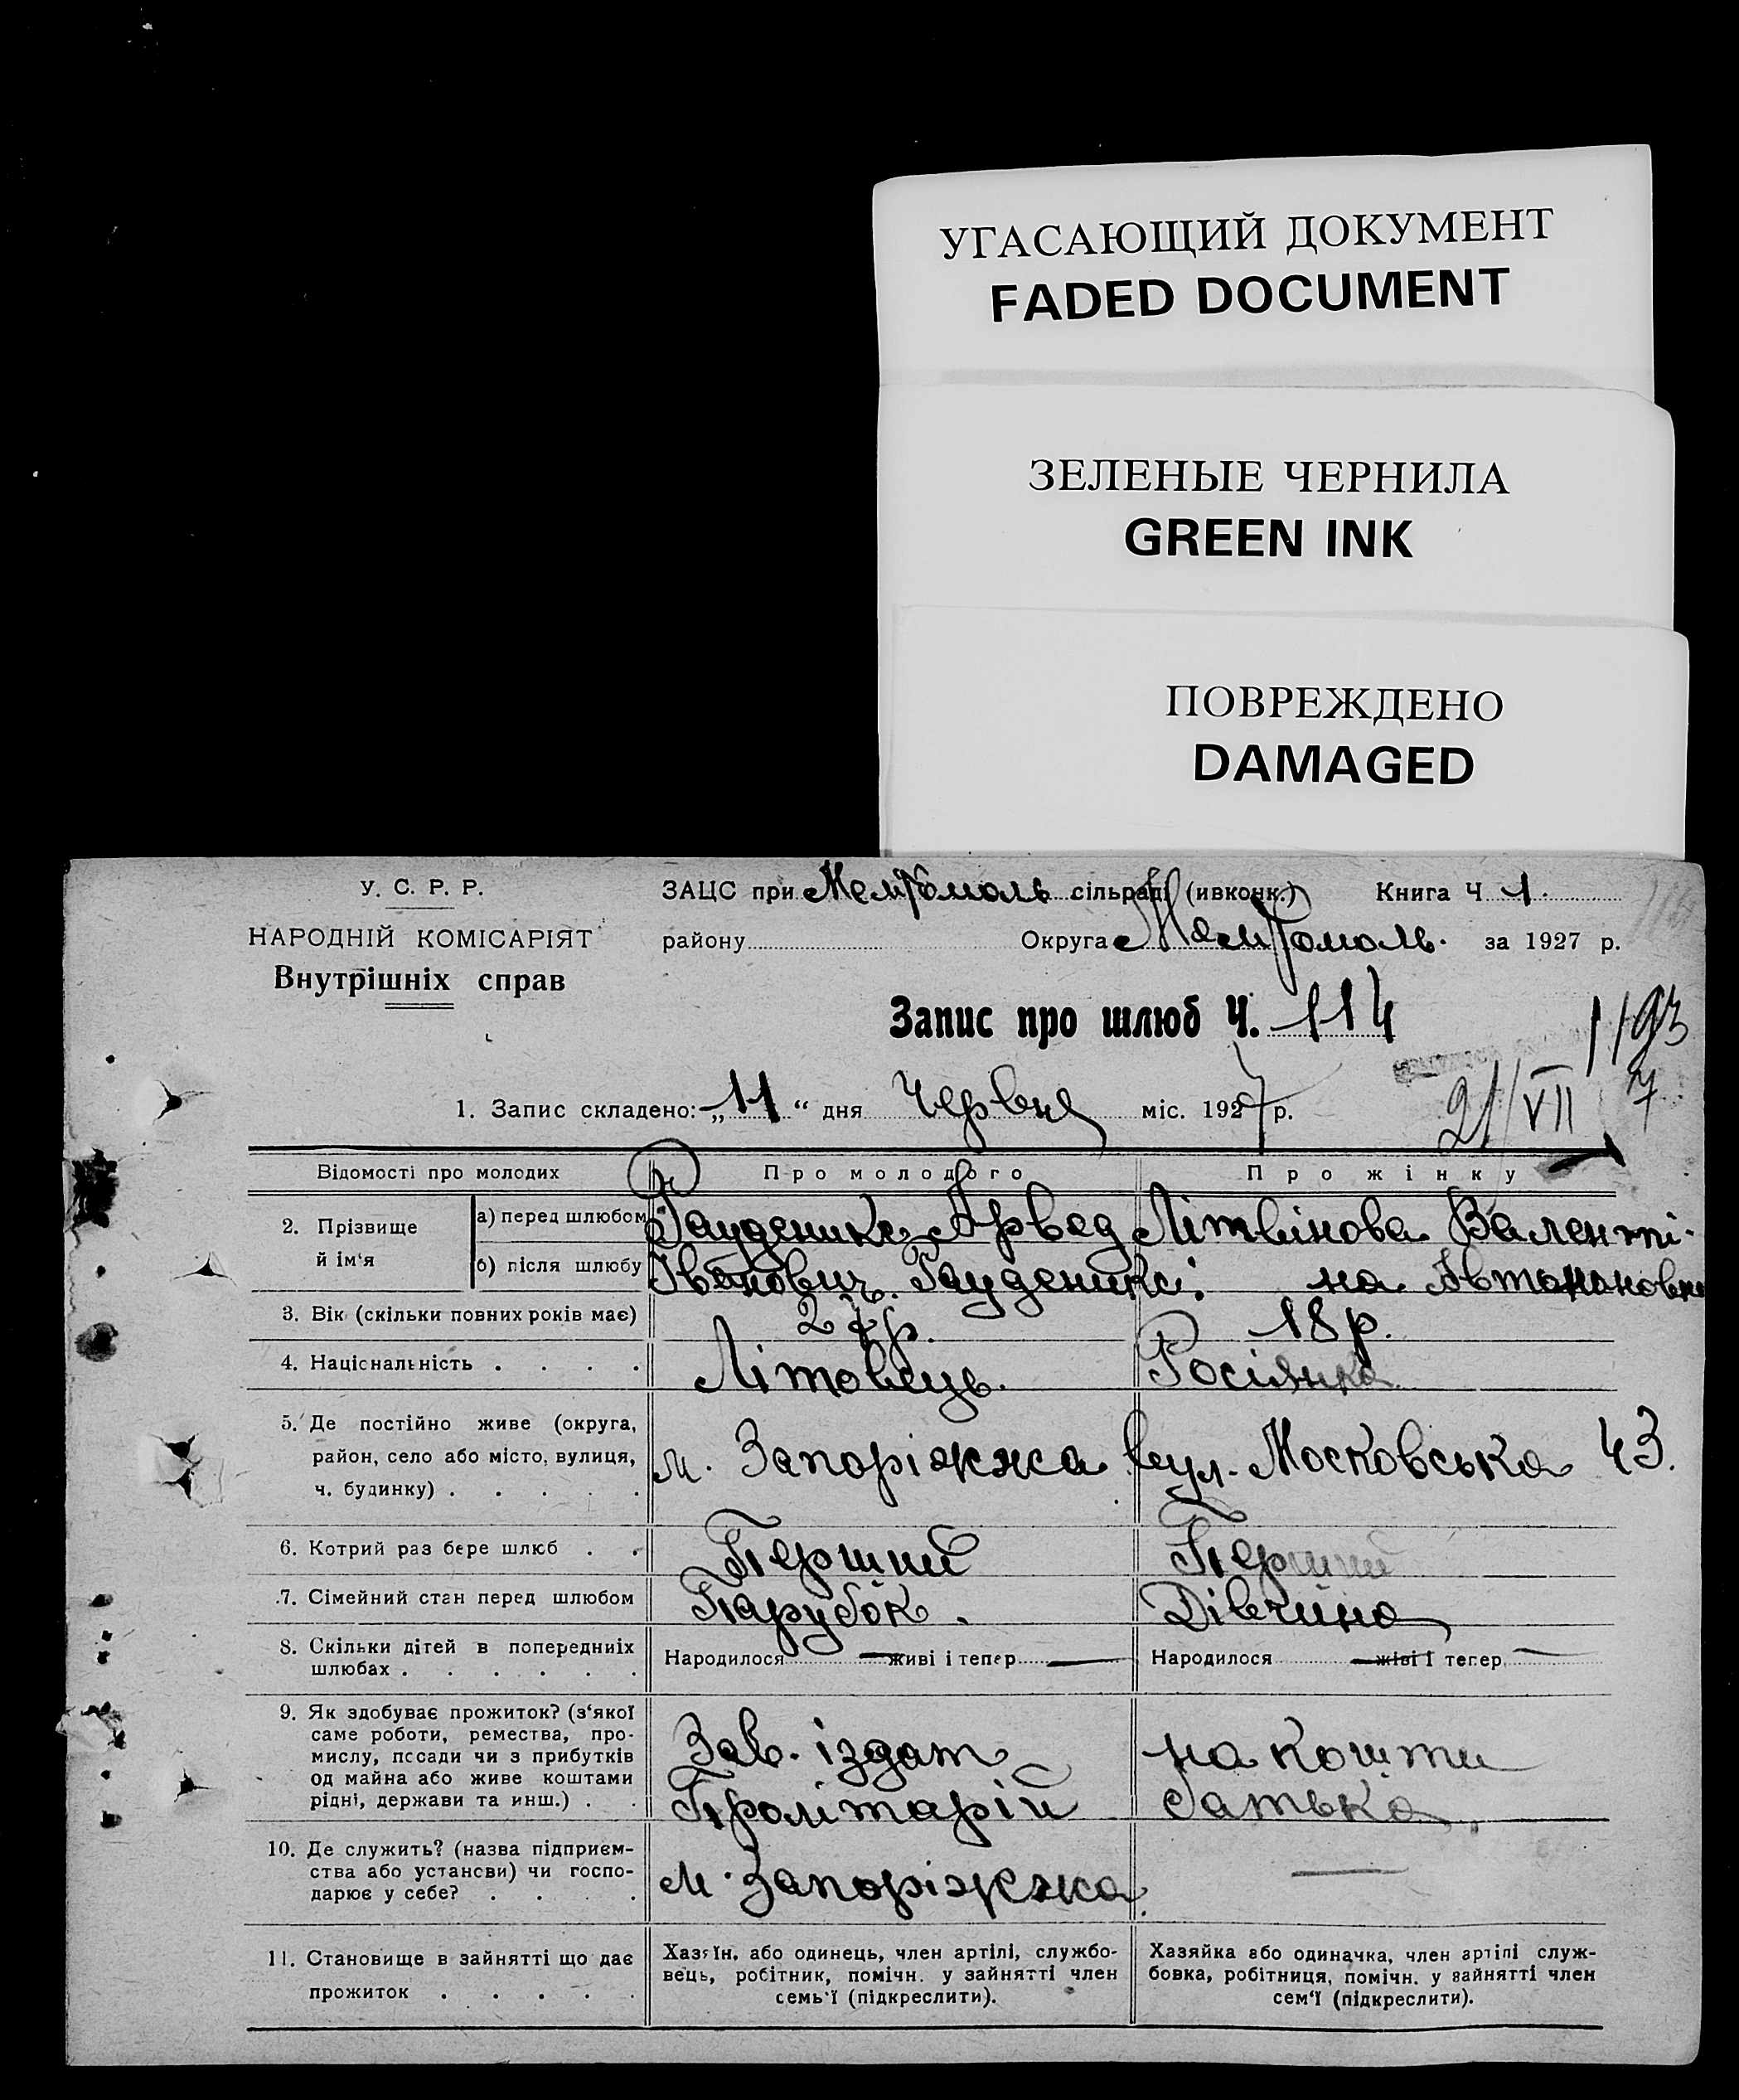 УГАСАЮЩИЙ ДОКУМЕНТ
FADED DOCUMENT
ЗЕЛЕНЫЕ ЧЕРНИЛА
GREEN INK
ПОВРЕЖДЕНО
DAMAGED
У. С. Р. Р.
НАРОДНІЙ КОМІСАРІЯТ
Внутрішніх справ
ЗАЦС при сільраді (ивконк.) Книга Ч. 1.
району Округа за 1927 р.
Запис про шлюб Ч. 114
1193
7
21/VII
1. Запис складено: „11“ дня Червня міс. 1927 р.
Відомості про молодих Про молодого Про жінку
2. Прізвище й ім‘я
а) перед шлюбом Арвед Літвінова Валенті-
б) після шлюбу Іванович. на
3. Вік (скільки повних років має) 18 р.
4. Національність . . . . Літовець. Росіянка
5. Де постійно живе (округа,
район, село або місто, вулиця,
ч. будинку) . . . . . м. Запоріжжа вул. Московська 43.
6. Котрий раз бере шлюб . . Перший Перший
7. Сімейний стан перед шлюбом Парубок. Дівчина
8. Скільки дітей в попередниіх
шлюбах . . . . . . Народилося — живі і тепер — Народилося — живі і тепер —
9. Як здобуває прожиток? (з‘якої
саме роботи, ремества, про-
мислу, посади чи з прибутків
од майна або живе коштами
рідні, держави та инш.) . .
Зав. іздат на кошти
Пролітарій батька
10. Де служить? (назва підприєм-
ства або установи) чи госпо-
дарює у себе? . . . . м. Запоріжжа. —
11. Становище в зайнятті що дає
прожиток . . . . .
Хазяїн, або одинець, член артілі, службо-
вець, робітник, помічн. у зайнятті член
семь‘ї (підкреслити).
Хазяйка або одиначка, член артілі служ-
бовка, робітниця, помічн. у зайнятті член
сем‘ї (підкреслити).